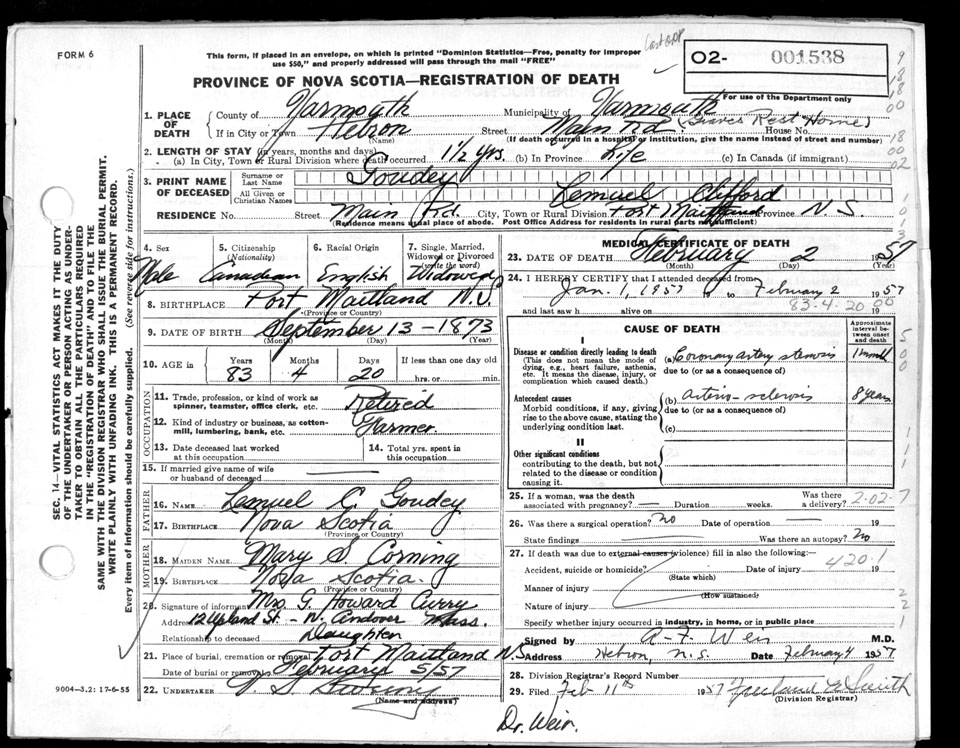 FORM 6
This form, if placed in an envelope, on which is printed "Dominion Statistics—Free, penalty for improper
use $50," and properly addressed will pass through the mail "FREE"
PROVINCE OF NOVA SCOTIA—REGISTRATION OF DEATH
O2- 001538
For use of the Department only
SEC. 14—VITAL STATISTICS ACT MAKES IT THE DUTY
OF THE UNDERTAKER OR PERSON ACTING AS UNDER-
TAKER TO OBTAIN ALL THE PARTICULARS REQUIRED
IN THE "REGISTRATION OF DEATH" AND TO FILE THE
SAME WITH THE DIVISION REGISTRAR WHO SHALL ISSUE THE BURIAL PERMIT.
WRITE PLAINLY WITH UNFADING INK. THIS IS A PERMANENT RECORD.
Every item of information should be carefully supplied. (See reverse side for instructions.)
1. PLACE OF DEATH
County of Yarmouth Municipality of Yarmouth
If in City or Town Hebron Street Main Rd. (Graves Rest Home) House No.
(Name) (If death occurred in a hospital or institution, give the name instead of street and number)
2. LENGTH OF STAY (in years, months and days)
(a) In City, Town or Rural Division where death occurred 1 1/2 yrs. (b) In Province Life (c) In Canada (if immigrant)
3. PRINT NAME OF DECEASED
Surname or Last Name Goudey
All Given or Christian Names Lemuel Clifford
RESIDENCE No. Street Main Rd. City, Town or Rural Division Port Maitland Province N.S.
(Residence means usual place of abode. Post Office Address for residents in rural parts not sufficient)
4. Sex 5. Citizenship (Nationality) 6. Racial Origin 7. Single, Married, Widowed or Divorced (write the word)
Male Canadian English Widowed
8. BIRTHPLACE Port Maitland N.S.
(Province or Country)
9. DATE OF BIRTH September 13 - 1873
(Month) (Day) (Year)
10. AGE in Years Months Days If less than one day
83 4 20 hrs. or min.
OCCUPATION
11. Trade, profession, or kind of work as
spinner, teamster, office clerk, etc. Retired
12. Kind of industry or business, as cotton-
mill, lumbering, bank, etc. Farmer
13. Date deceased last worked
at this occupation
14. Total yrs. spent in
this occupation
15. If married give name of wife
or husband of deceased
FATHER
16. NAME Lemuel C. Goudey
17. BIRTHPLACE Nova Scotia
(Province or Country)
MOTHER
18. MAIDEN NAME Mary S. Corning
19. BIRTHPLACE Nova Scotia
(Province or Country)
20. Signature of informant Mrs. G. Howard Curry
Address 12 Upland St. - N. Andover Mass.
Relationship to deceased Daughter
21. Place of burial, cremation or removal Port Maitland NS
Date of burial or removal February 5/57
22. UNDERTAKER
(Name and address)
9004-3.2: 17-6-55
MEDICAL CERTIFICATE OF DEATH
23. DATE OF DEATH February 2 1957
(Month) (Day) (Year)
24. I HEREBY CERTIFY that I attended deceased from
Jan. 1, 1957 to February 2 1957
83-4-20
and last saw h alive on 19
CAUSE OF DEATH
Approximate interval between onset and death
I
Disease or condition directly leading to death
(This does not mean the mode of
dying, e.g., heart failure, asthenia,
etc. It means the disease, injury, or
complication which caused death.)
(a) Coronary artery stenosis 1 month
due to (or as a consequence of)
Antecedent causes
Morbid conditions, if any, giving
rise to the above cause, stating the
underlying condition last.
(b) arterio-sclerosis 8 years
due to (or as a consequence of)
(c)
II
Other significant conditions
contributing to the death, but not
related to the disease or condition
causing it.
25. If a woman, was the death
associated with pregnancy? Duration weeks. Was there
a delivery?
2-02-7
26. Was there a surgical operation? No Date of operation 19
State findings Was there an autopsy? No
27. If death was due to external causes (violence) fill in also the following:—
420.1
Accident, suicide or homicide? Date of injury 19
(State which)
Manner of injury
(How sustained)
Nature of injury
Specify whether injury occurred in industry, in home, or in public place
Signed by A. F. Weir M.D.
Address Hebron, N.S. Date February 4 1957
28. Division Registrar's Record Number
29. Filed Feb 11th 1957
(Division Registrar)
Dr. Weir.